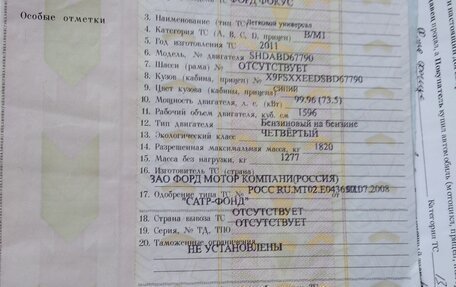 Особые отметки
ФОРД ФОКУС
3. Наименование (тип ТС) Легковой универсал
4. Категория ТС (А, В, С, D, прицеп) B/M1
5. Год изготовления ТС 2011
6. Модель, № двигателя SHDABD67790
7. Шасси (рама) № ОТСУТСТВУЕТ
8. Кузов (кабина, прицеп) № X9FSXXEEDSBD67790
9. Цвет кузова (кабины, прицепа) СИНИЙ
10. Мощность двигателя, л. с. (кВт) 99.96 (73.5)
11. Рабочий объем двигателя, куб. см 1596
12. Тип двигателя Бензиновый на бензине
13. Экологический класс ЧЕТВЁРТЫЙ
14. Разрешенная максимальная масса, кг 1820
15. Масса без нагрузки, кг 1277
16. Изготовитель ТС (страна)
ЗАО ФОРД МОТОР КОМПАНИ(РОССИЯ)
17. Одобрение типа ТС № РОСС RU.MT02.E04369
.07.2008
"САТР-ФОНД"
18. Страна вывоза ТС ОТСУТСТВУЕТ
19. Серия, № ТД, ТПО ОТСУТСТВУЕТ
20. Таможенные ограничения
НЕ УСТАНОВЛЕНЫ
Категория ТС